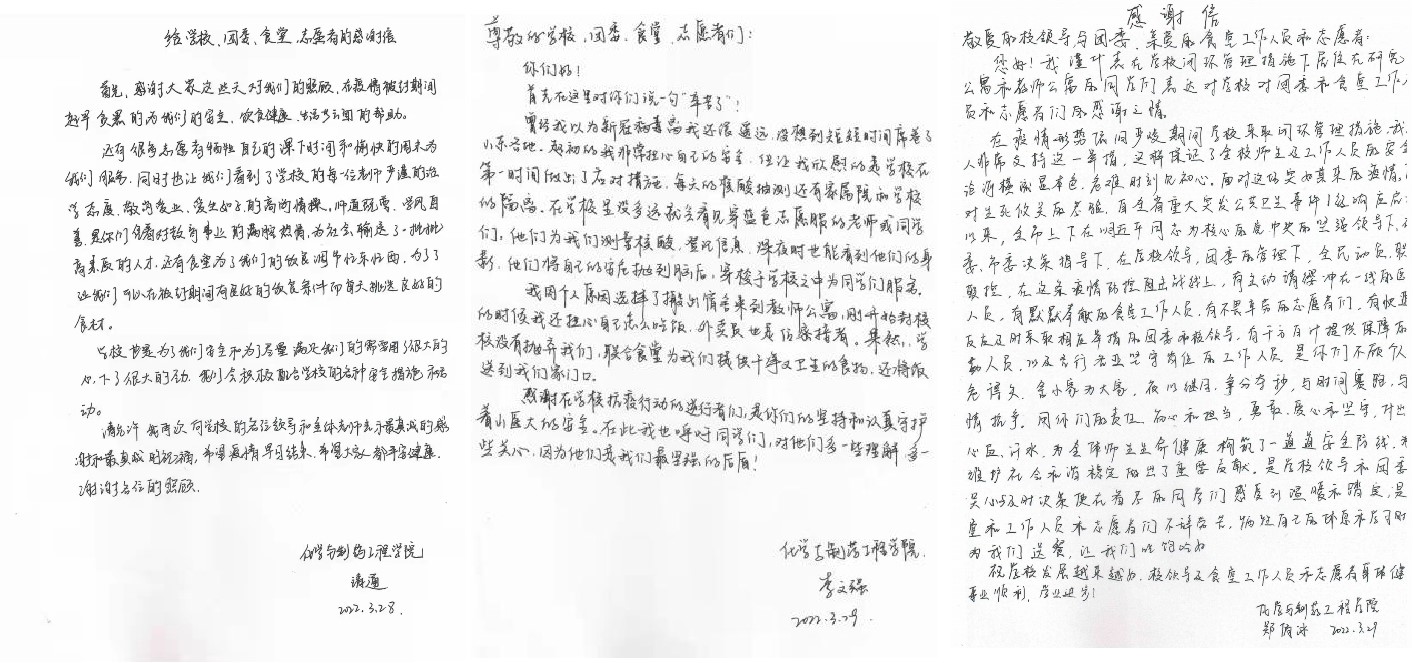 给学校、团委、食堂、志愿者的感谢信
首先，感谢大家这些天对我们的照顾，在疫情被封期间
起早贪黑的为我们的安全，饮食健康，生活方面的帮助。
还有很多志愿者牺牲自己的课下时间和愉快的周末为
我们服务，同时也让我们看到了学校的每一位老师严谨的治
学态度，敬岗爱业，爱生如子的高尚情操，师道既尊，学风自
善，是你们凭着对教育事业的满腔热情，为社会输送了一批批
高素质的人才，还有食堂为了我们的饮食调节忙东忙西，为了
让我们可以在被封期间有良好的饮食条件而每天挑选良好的
食材。
学校也是为了我们安全和为了尽量满足我们的需要用了很大的
心，下了很大的功，我们会积极配合学校的各种安全措施和活
动。
请允许我再次向学校的各位领导和全体老师表示最真诚的感
谢和最真诚的祝福，希望疫情早日结束，希望大家都平安健康。
谢谢各位的照顾.
化学与制药工程学院
2022.3.28.
尊敬的学校、团委、食堂、志愿者们：
你们好！
首先在这里对你们说一句“辛苦了”！
曾经我以为新冠病毒离我还很遥远，没想到短短时间席卷了
山东各地。起初的我非常担心自己的安全，但让我欣慰的是学校在
第一时间做出了应对措施，每天的核酸抽测还有家属院和学校
的隔离。在学校里没多远就会看见穿蓝色志愿服的老师或同学
们，他们为我们测量核酸，登记信息，深夜时也能看到他们的身
影，他们将自己的安危抛到脑后，穿梭于学校之中为同学们服务。
我因个人原因选择了搬出宿舍来到教师公寓，刚开始封校
的时候我还担心自己怎么吃饭，外卖员也是传染接着。果然，学
校没有抛弃我们，联合食堂为我们提供干净又卫生的食物，还将饭
送到我们家门口。
感谢在学校抗疫行动的逆行者们，是你们的坚持和认真守护
着山医大的安全。在此我也呼吁同学们，对他们多一些理解多一
些关心，因为他们是我们最坚强的后盾！
化学与制药工程学院.
李文强
2022.3.29
感谢信
敬爱的校领导与团委、亲爱的食堂工作人员和志愿者：
您好！我谨代表在学校闭环管理措施下居住在研究
公寓和老师公寓的同学们表达对学校对团委和食堂工作人
员和志愿者们的感谢之情。
在疫情形势依旧严峻期间学校采取闭环管理措施，我
人非常支持这一举措，这样保证了全校师生及工作人员的安全
沧海横流显本色，危难时刻见初心。面对这场突如其来的疫情，
对生死攸关的考验，自全省重大突发公共卫生事件1级响应启
以来，全市上下在以习近平同志为核心的党中央的坚强领导下，
委、市委决策指导下，在学校领导，团委的管理下，全民动员，联
联控，在这条疫情防控阻击战线上，有主动请缨冲在一线的医
人员，有默默奉献的食堂工作人员，有不畏辛苦的志愿者们，有快速
反应及时采取相应举措的团委和校领导，有千方百计提供保障的
勤人员，以及各行各业坚守岗位的工作人员，是你们不顾个人
危得失，舍小家为大家，夜以继日，争分夺秒，与时间赛跑，与
情抗争，用你们的责任、初心和担当，勇敢、爱心和坚守，付出
心血、汗水，为全体师生生命健康构筑了一道道安全防线，为
维护社会和谐稳定做出了重要贡献。是学校领导和团委
关心与及时决策使在宿舍的同学们感受到温暖和踏实，是
堂和工作人员和志愿者们不辞劳苦，牺牲自己的休息和学习时
为我们送餐，让我们吃饱吃好
祝学校发展越来越好，校领导及食堂工作人员和志愿者身体健
事业顺利，学业进步！
化学与制药工程学院
2022.3.29